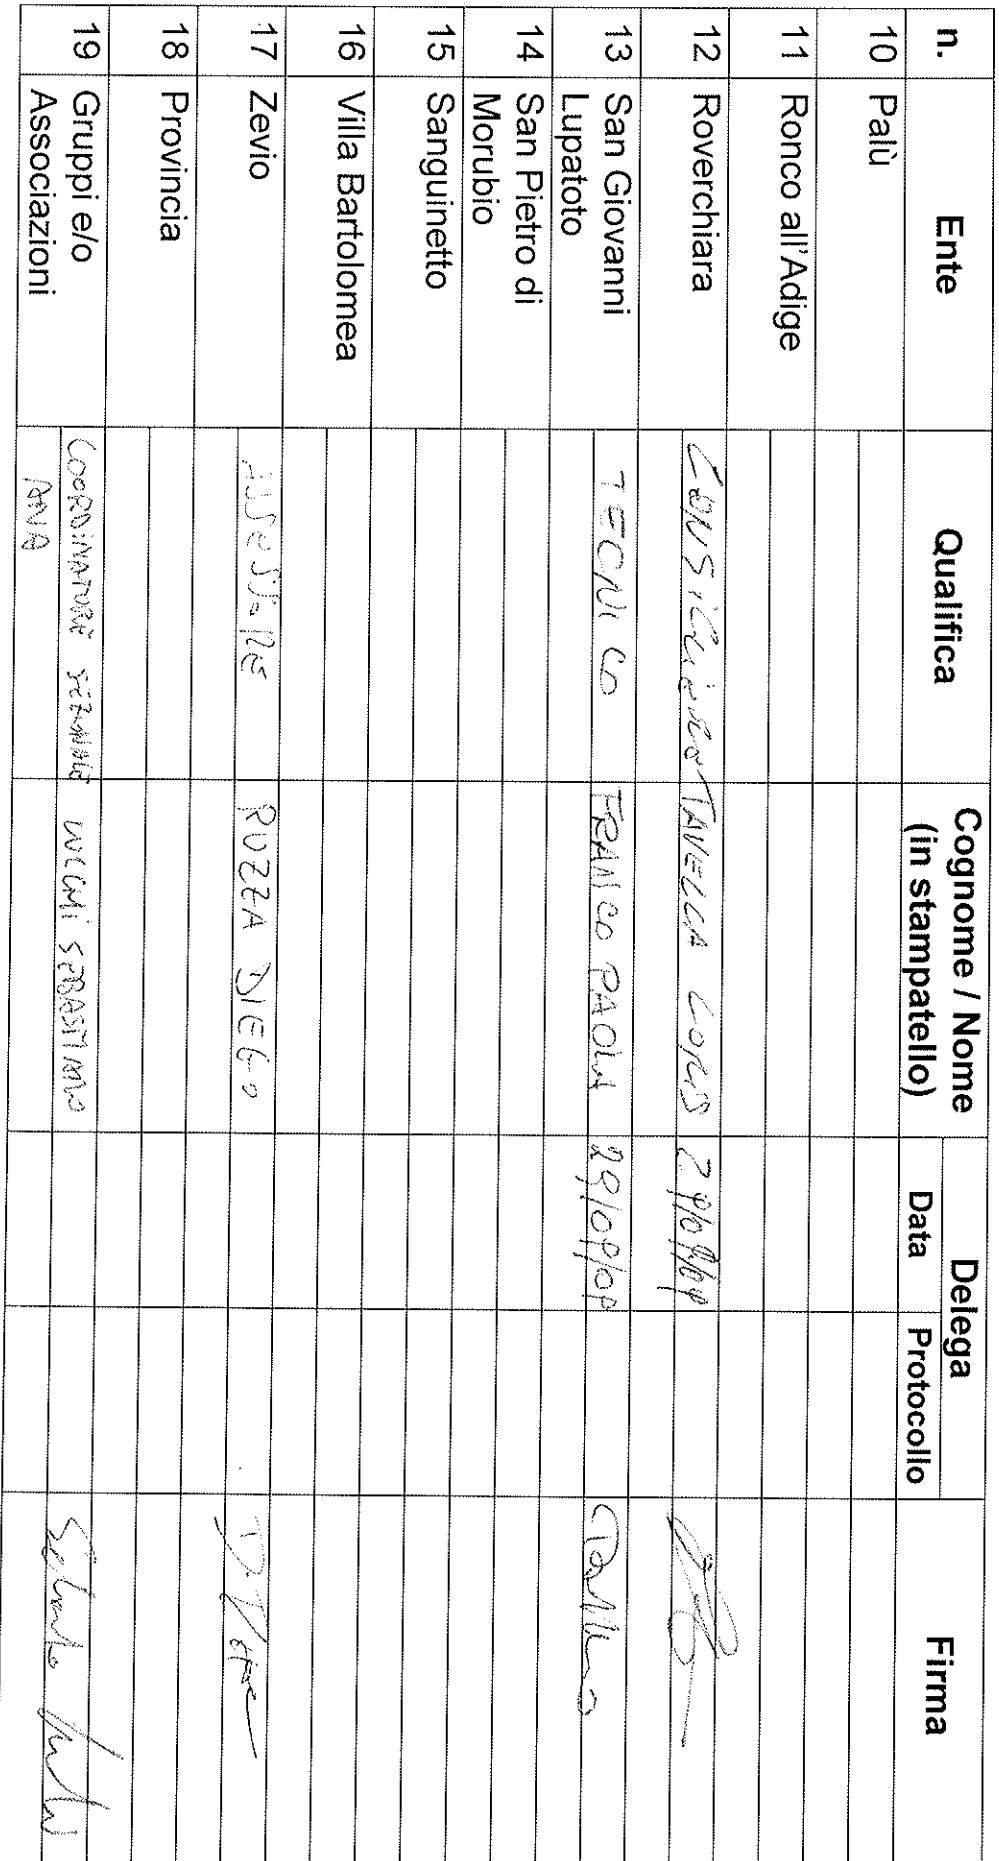 n. Ente Qualifica Cognome / Nome (in stampatello) Delega Data Protocollo Firma
10 Palù
11 Ronco all'Adige
12 Roverchiara CONSIGLIERE TAVELLA
13 San Giovanni Lupatoto TECNICO FRANCO PAOLA 29/09/09
14 San Pietro di Morubio
15 Sanguinetto
16 Villa Bartolomea
17 Zevio ASSESSORE RUZZA DIEGO
18 Provincia
19 Gruppi e/o Associazioni COORDINATORE SEZIONALE ANA SEBASTIANO